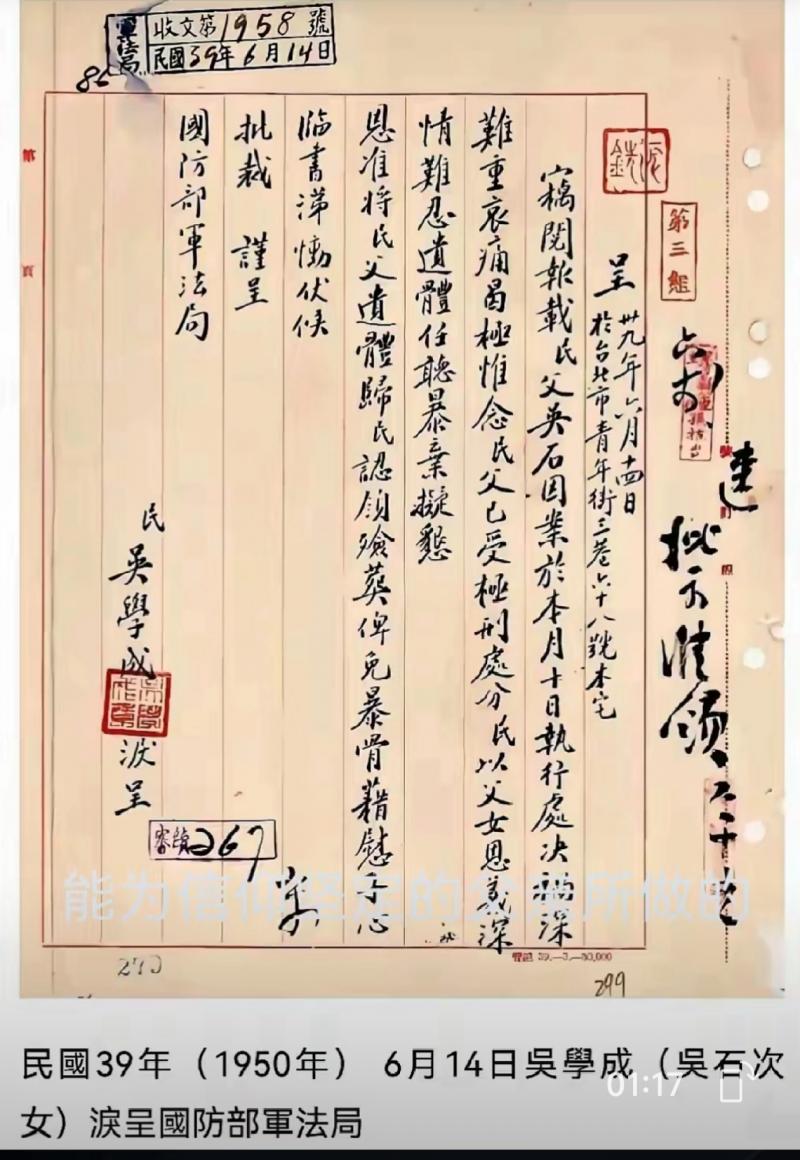 軍法局
收文第1958號
民國39年6月14日
第三組
呈 卅九年六月十四日
於台北市青年街三巷六十八號本宅
竊閱報載民父吳石因案於本月十日執行處決禍深
難重哀痛曷極惟念民父已受極刑處分民以父女恩義深
情難忍遺體任聽暴棄擬懇
恩准將民父遺體歸民認領殮葬俾免暴骨藉慰子心
臨書涕慟伏候
批裁 謹呈
國防部軍法局
民吳學成 淚呈
267
270
299
能为信仰坚定的父亲所做的
民國39年（1950年） 6月14日吳學成（吳石次
女）淚呈國防部軍法局
01:17